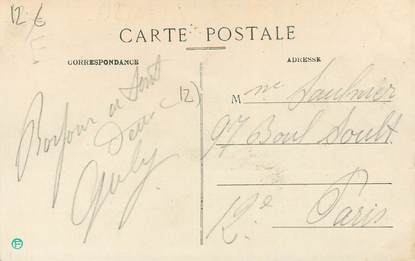 12 €
CARTE POSTALE
CORRESPONDANCE
ADRESSE
Bonjour a tout
12)
Mme Saulnier
97 Boul Soult
12e
Paris